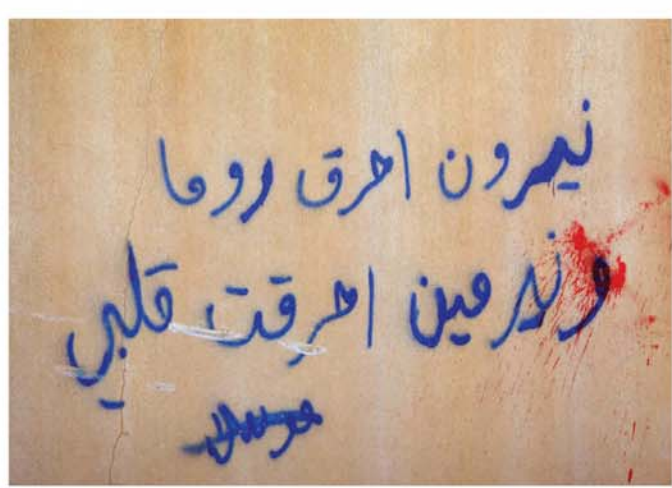 نيرون احرق روما
ونيرمين احرقت قلبي